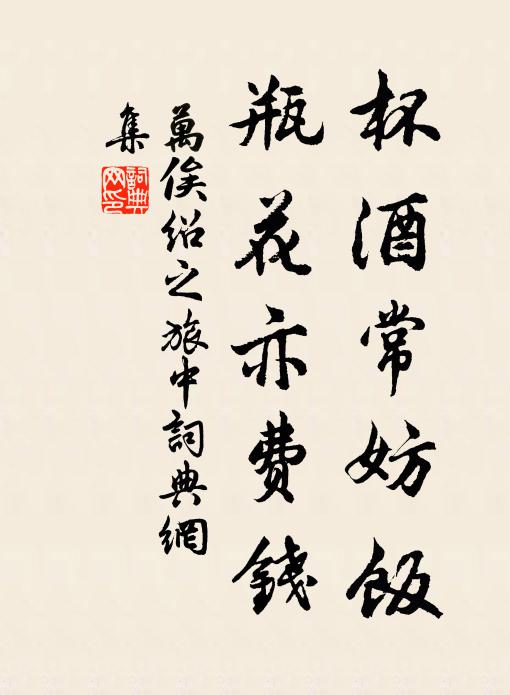 杯酒常妨飯
瓶花亦費錢
萬俟紹之旅中詞典網
集
詞典
网印